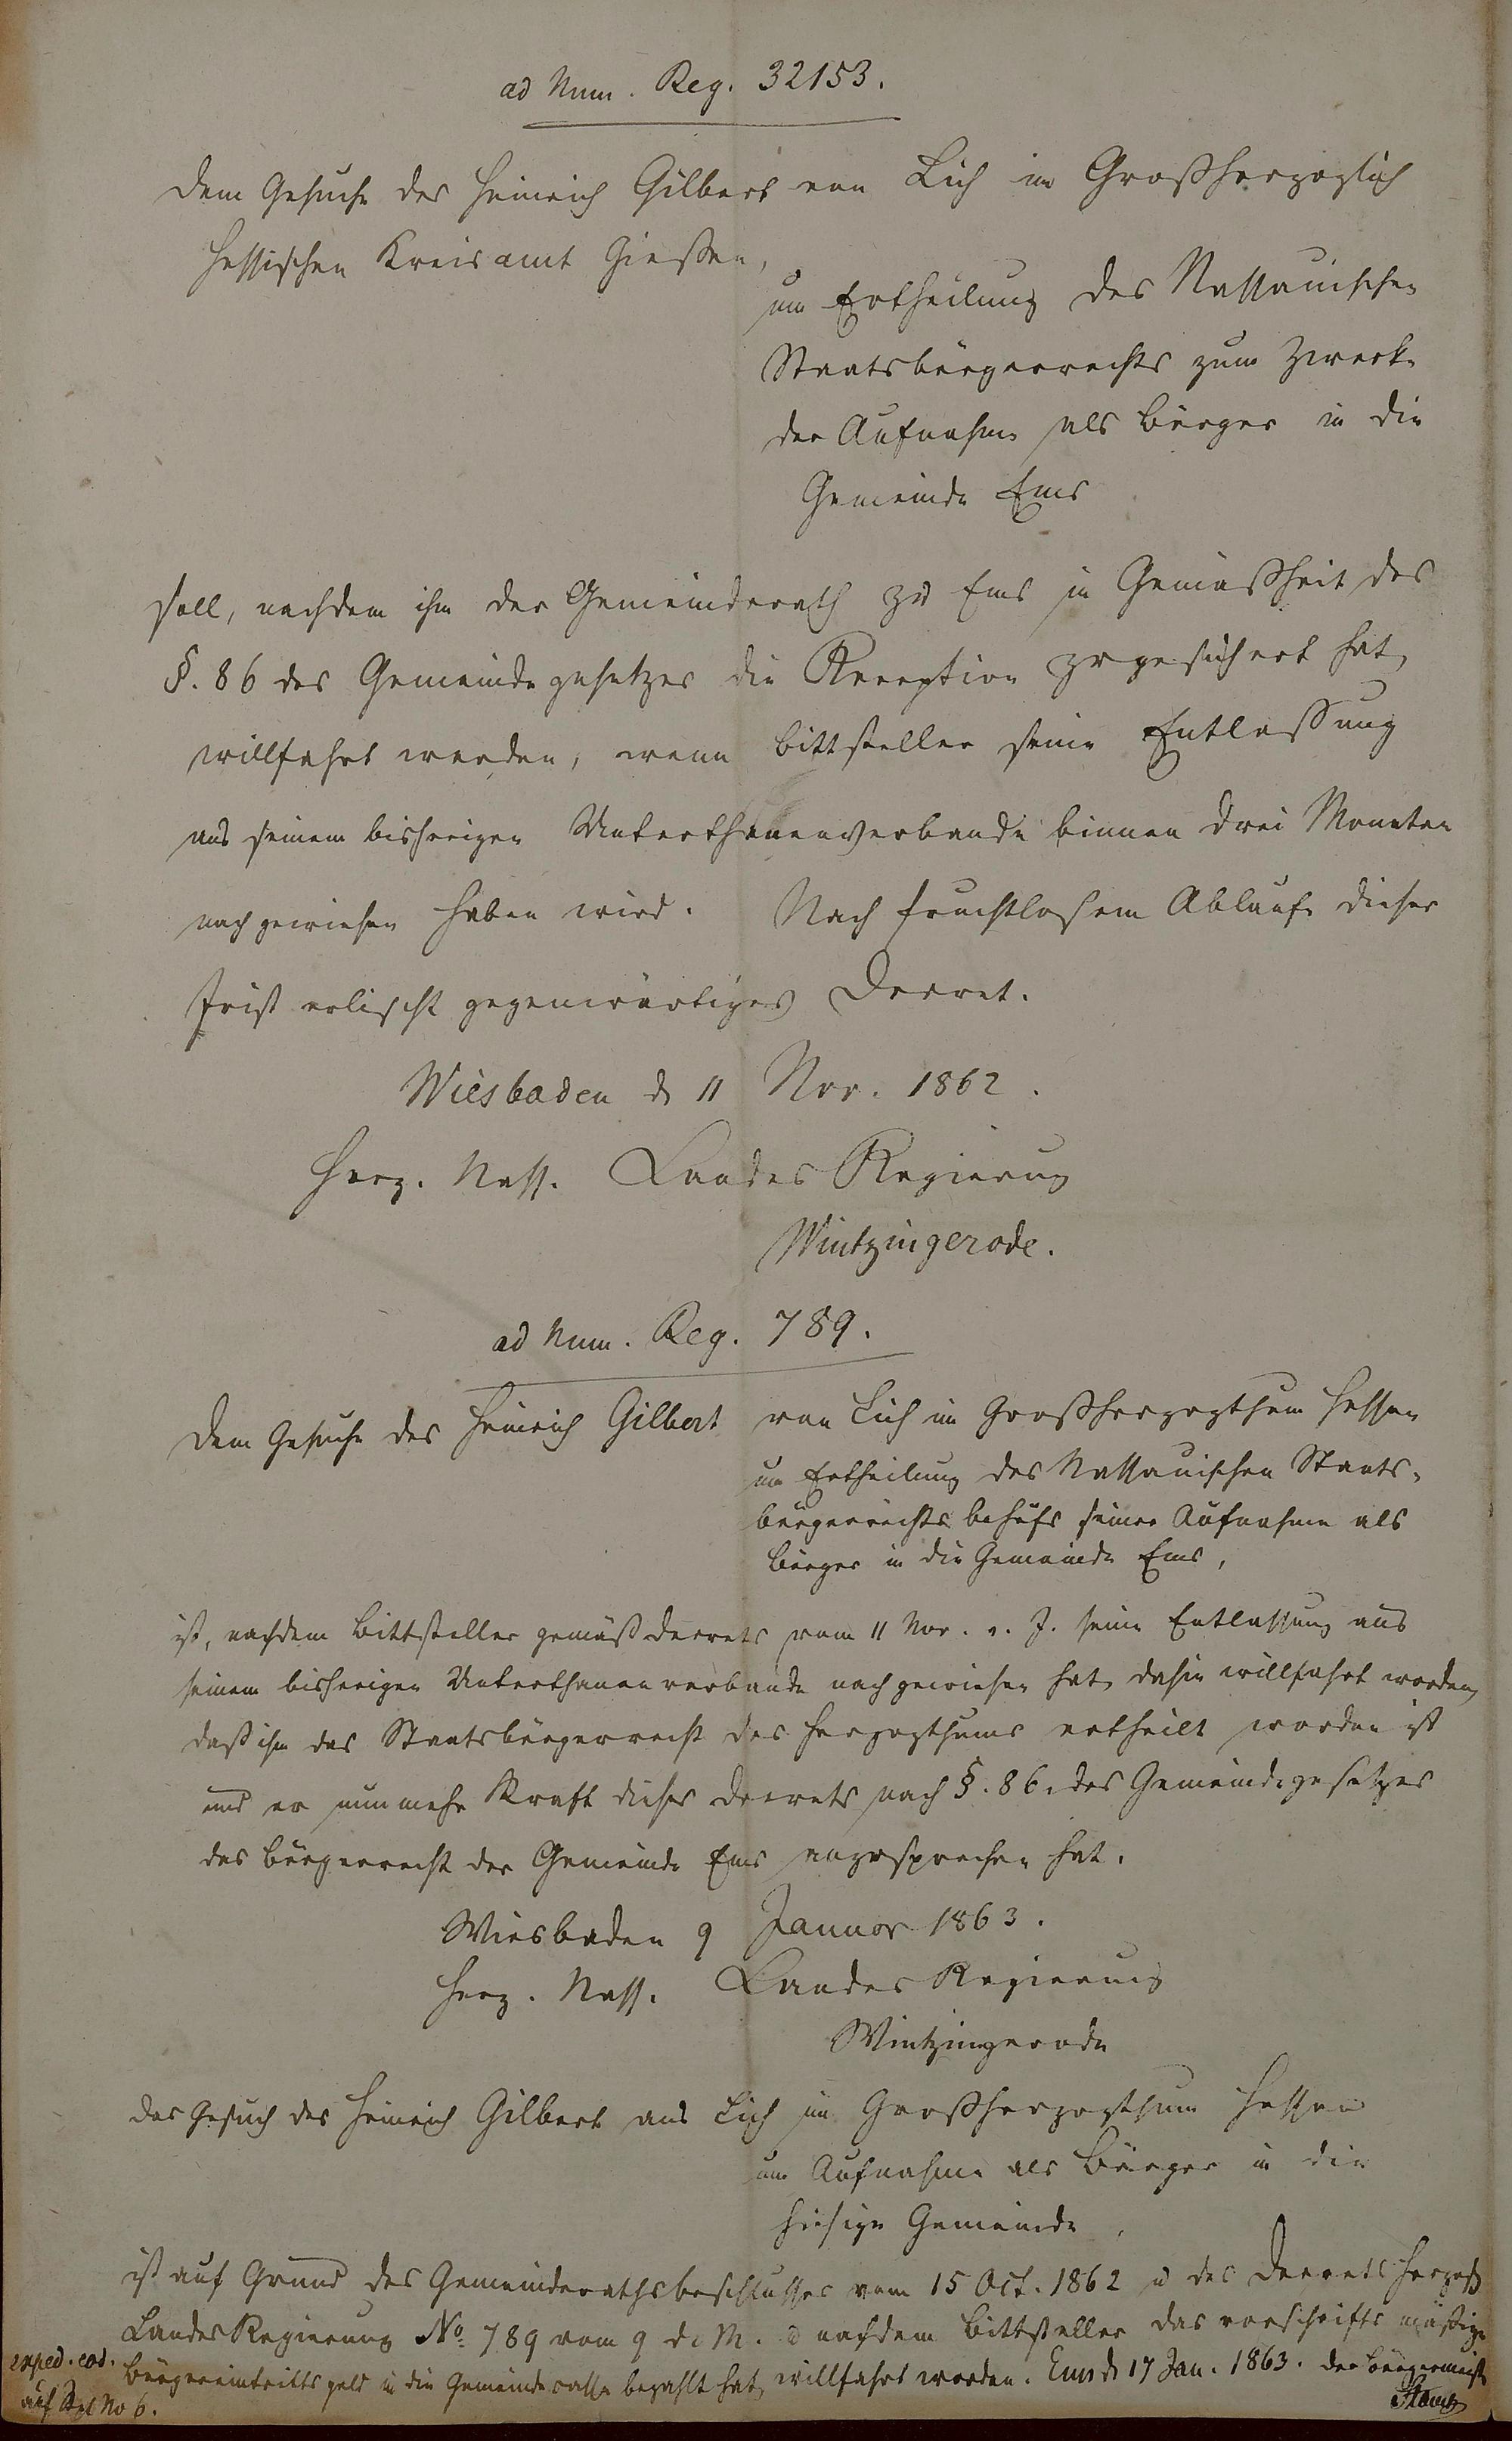 ad Num. Reg. 32153.
Dem Gesuche des Heinrich Gilbert von Lich im Großherzoglich
Hessischen Kreisamt Giessen,
um Ertheilung des Nassauischen
Staatsbürgerrechts zum Zwecke
der Aufnahme als Bürger in die
Gemeinde Ems
soll, nachdem ihm der Gemeinderath zu Ems in Gemäßheit des
§. 86 des Gemeindegesetzes die Reception zugesichert hat,
willfahrt werden, wenn Bittsteller seine Entlassung
aus seinem bisherigen Unterthanenverbande binnen drei Monaten
nachgewiesen haben wird. Nach fruchtlosem Ablaufe dieser
Frist erlischt gegenwärtiges Decret.
Wiesbaden d 11 Nov. 1862.
Herz. Nass. Landes Regierung
Wintzingerode.
ad Num. Reg. 789.
Dem Gesuche des Heinrich Gilbert von Lich im Großherzogthum Hessen
um Ertheilung des Nassauischen Staats-
bürgerrechts behufs seiner Aufnahme als
Bürger in die Gemeinde Ems,
ist, nachdem Bittsteller gemäß Decrets vom 11 Nov. v. J. seine Entlassung aus
seinem bisherigen Unterthanenverbande nachgewiesen hat, dahin willfahrt worden,
daß ihm das Staatsbürgerrecht des Herzogthums ertheilt worden ist
und er nunmehr Kraft dieses Decrets nach §. 86 des Gemeindegesetzes
das Bürgerrecht der Gemeinde Ems anzusprechen hat.
Wiesbaden 9 Januar 1863.
Herz. Nass. Landes Regierung
Wintzingerode
Das Gesuch des Heinrich Gilbert aus Lich im Großherzogthum Hessen
um Aufnahme als Bürger in die
hiesige Gemeinde,
ist auf Grund des Gemeinderathsbeschlusses vom 15 Oct. 1862 u des Decrets Herzogl
Landes Regierung No. 789 vom 9 d. M. u nachdem Bittsteller das vorschriftsmäßige
Bürgereintrittsgeld in die Gemeindecasse bezahlt hat, willfahrt worden. Ems d 17 Jan. 1863. Der Bürgermeister
exped. eod.
auf No 6.